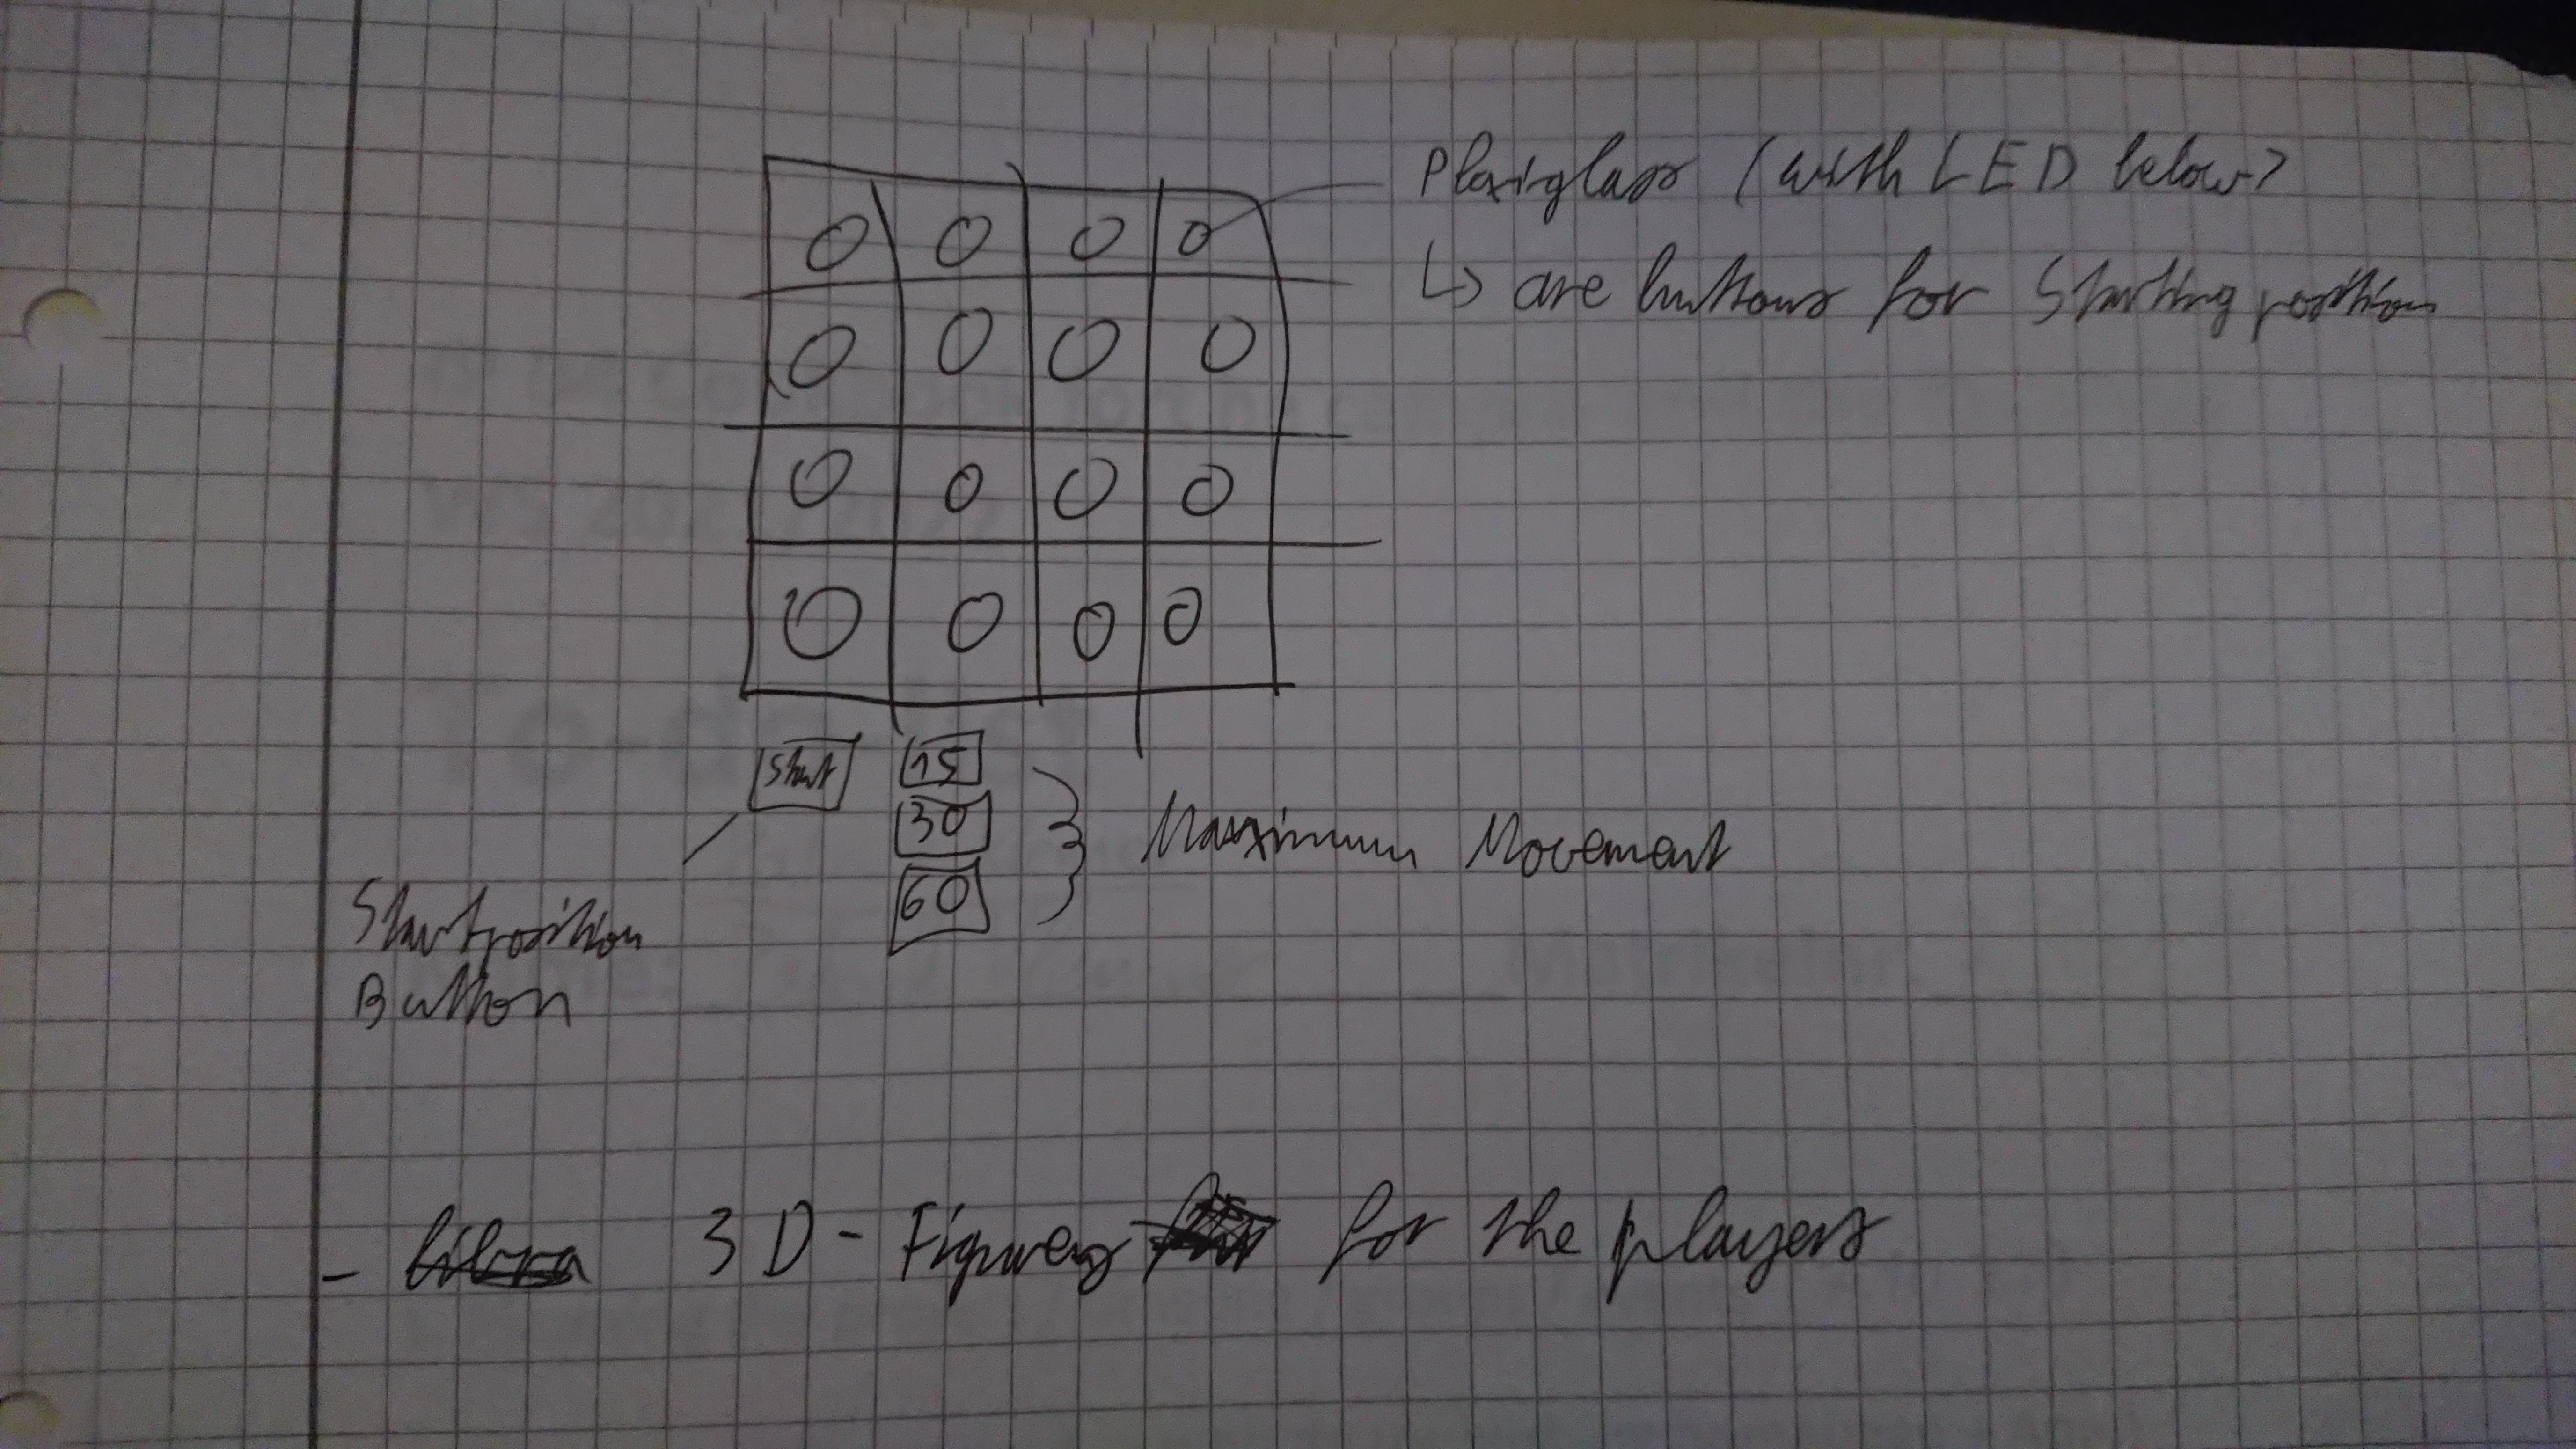 Plexiglass (with LED below)
↳ are buttons for Starting position
Start
15
30
60
Maximum Movement
Startposition
Button
- 3D-Figures for the players